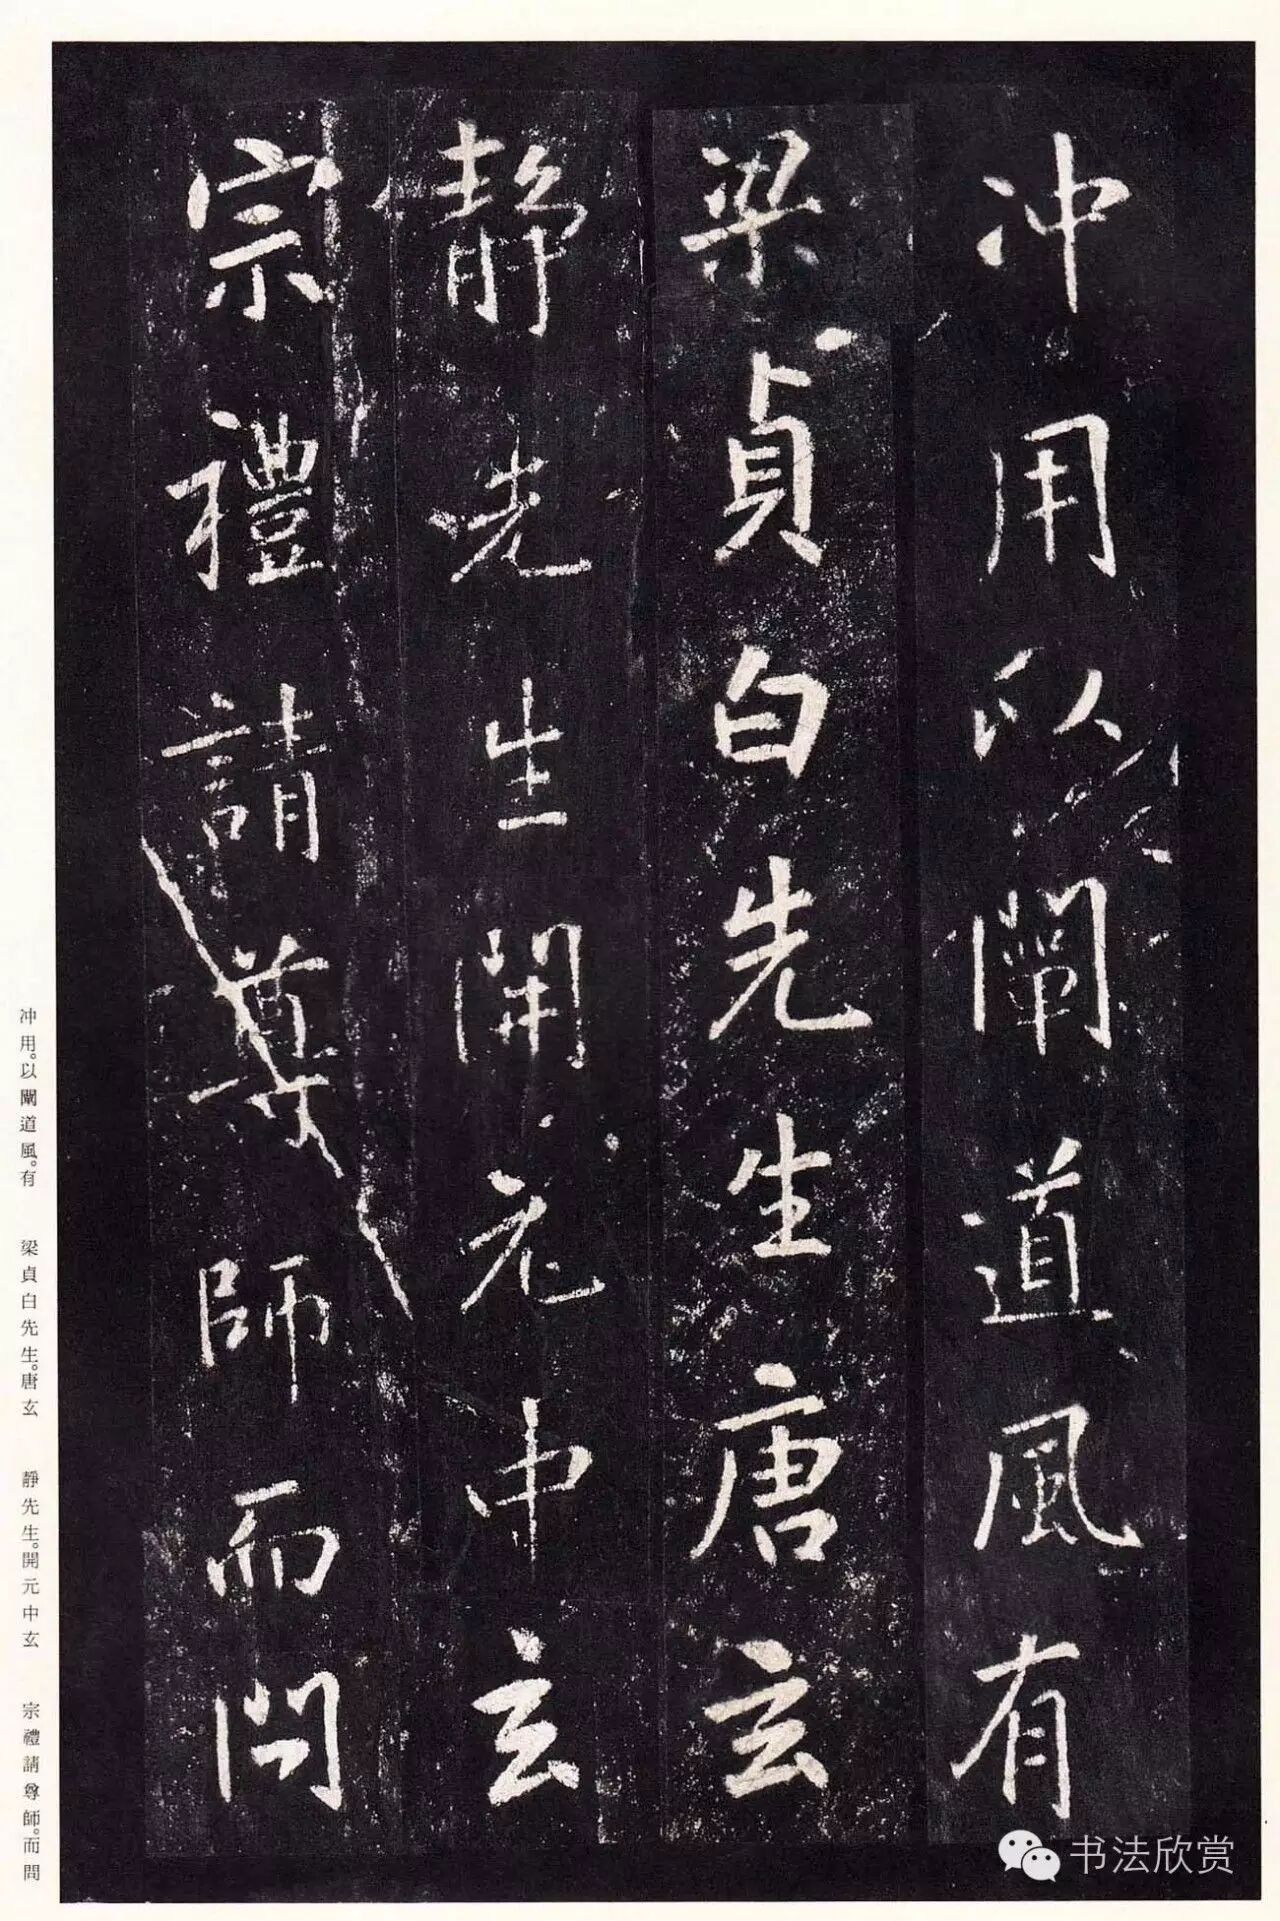 冲用以闡道風有
梁貞白先生唐玄
靜先生開元中玄
宗禮請尊師而問
冲用。以闡道風。有　梁貞白先生。唐玄　靜先生。開元中玄　宗禮請尊師。而問
书法欣赏